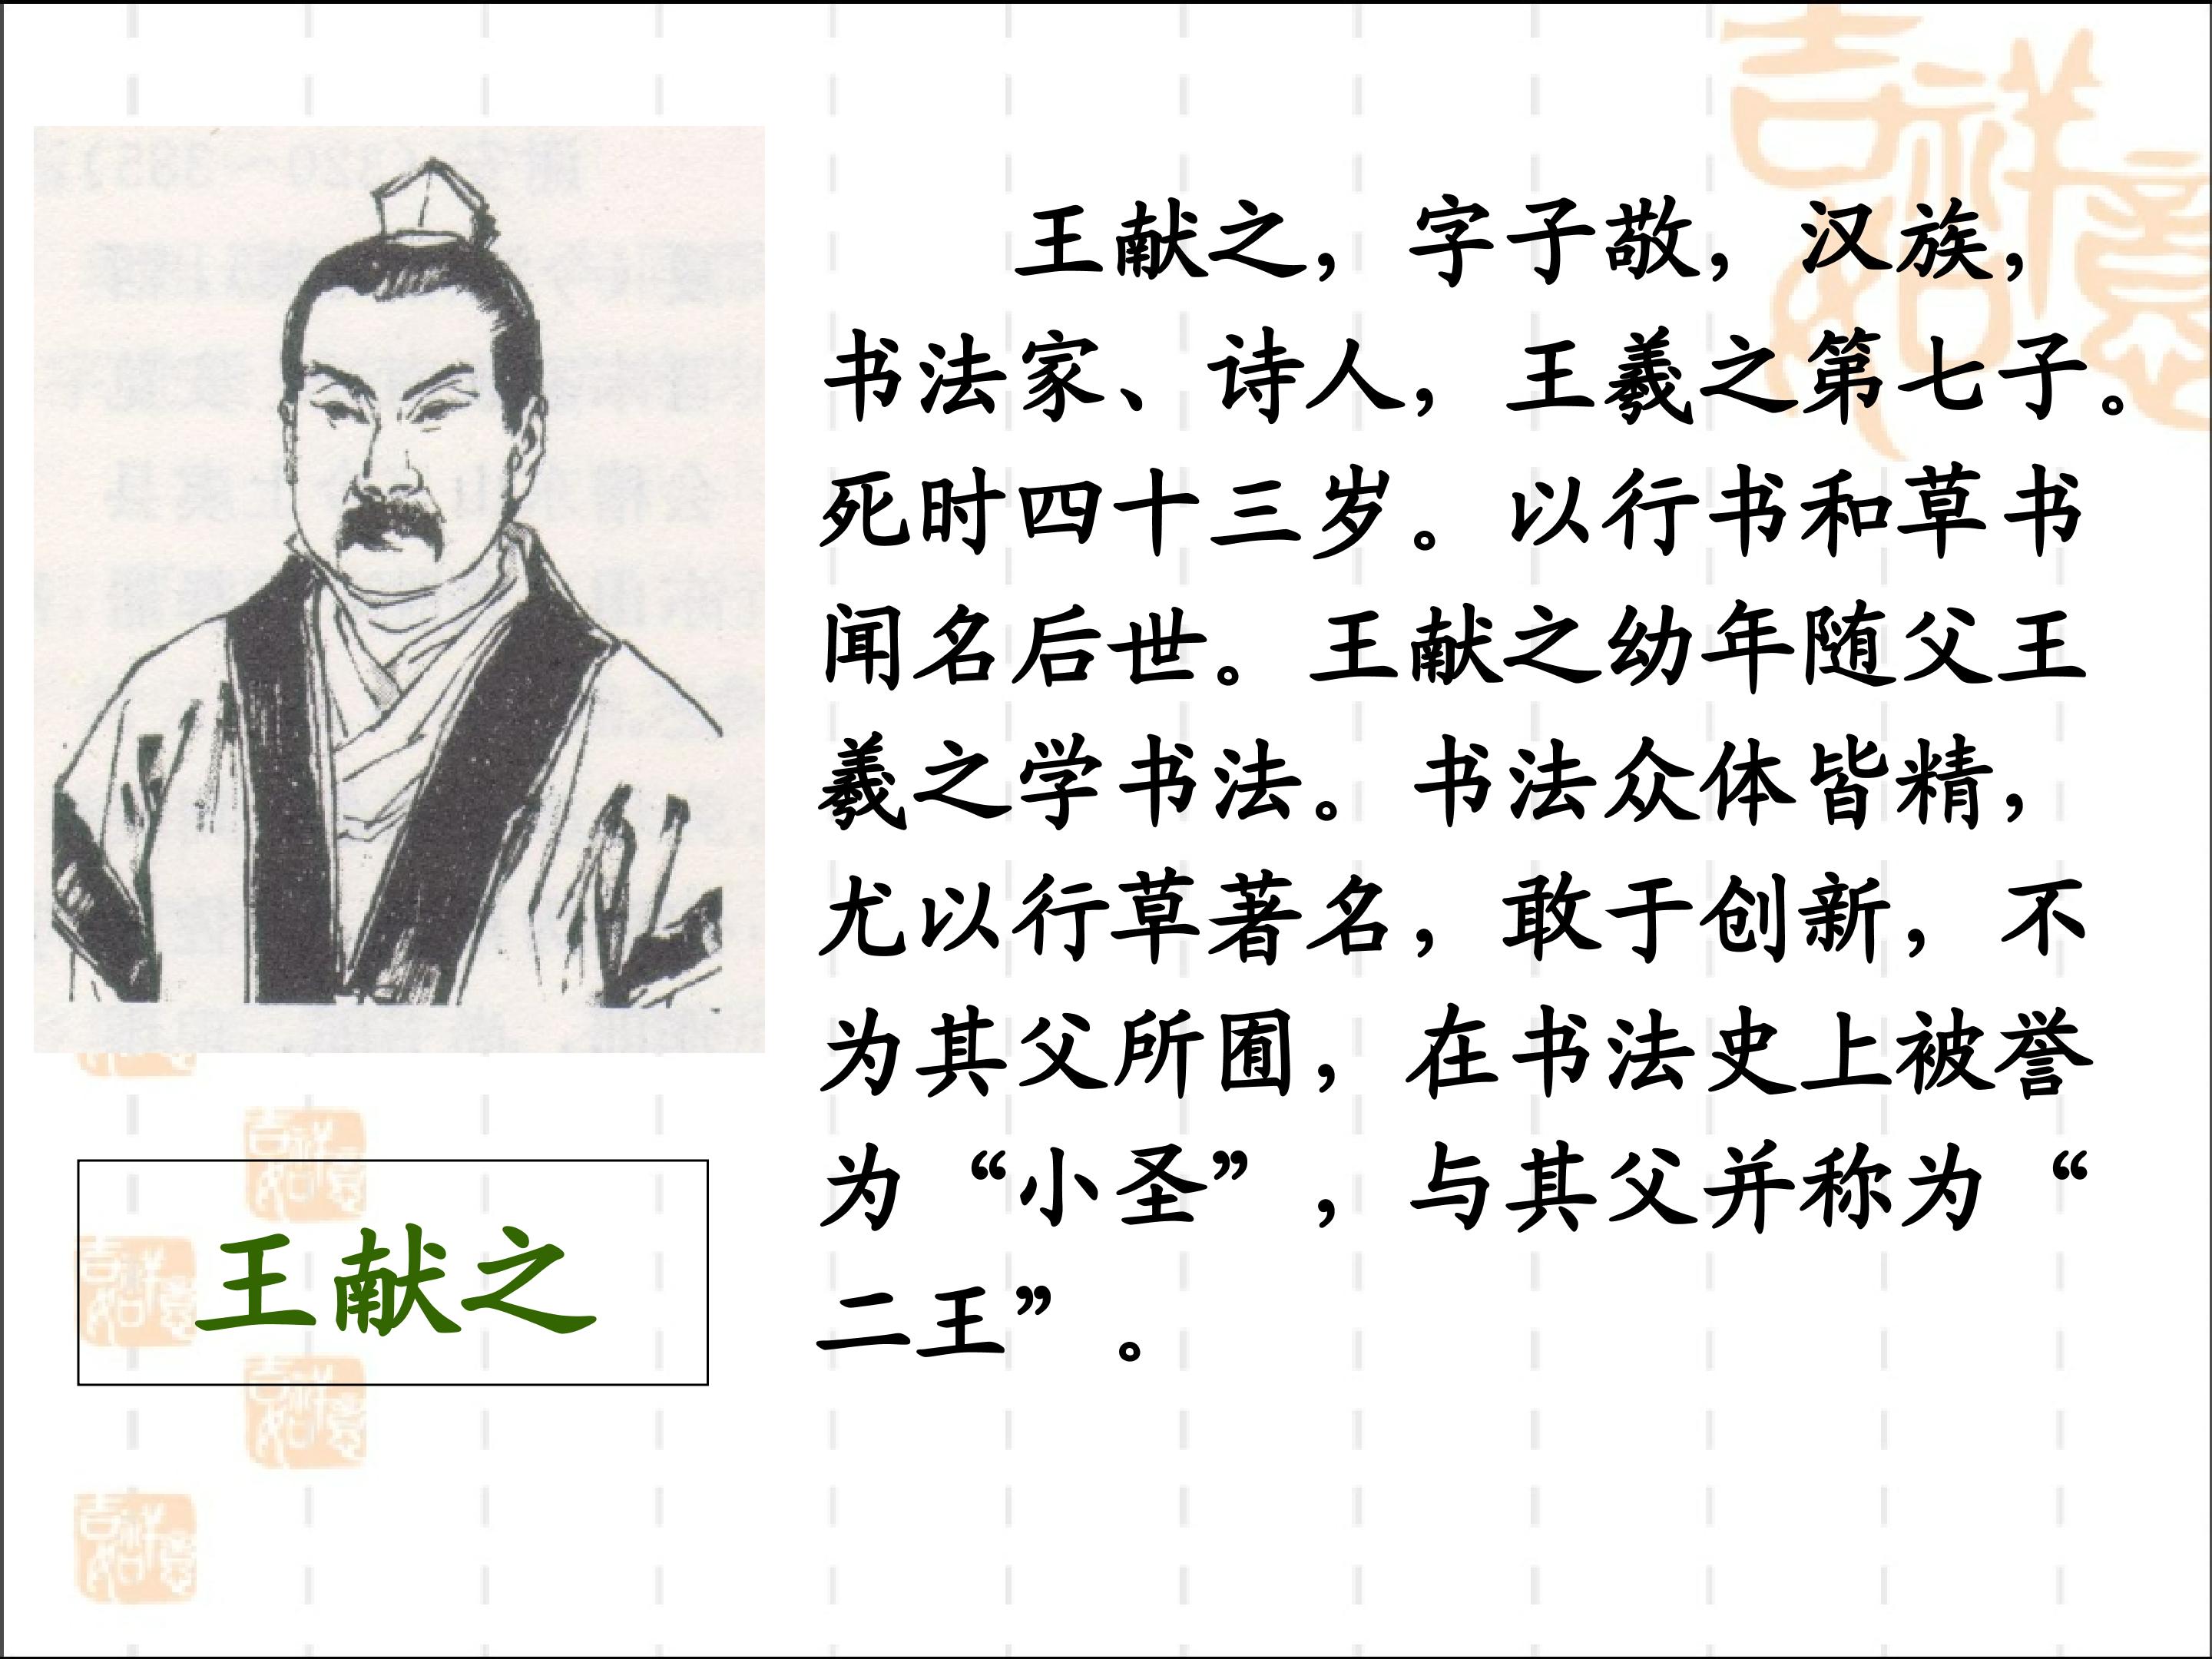 王献之，字子敬，汉族，
书法家、诗人，王羲之第七子。
死时四十三岁。以行书和草书
闻名后世。王献之幼年随父王
羲之学书法。书法众体皆精，
尤以行草著名，敢于创新，不
为其父所囿，在书法史上被誉
为“小圣”，与其父并称为“
二王”。
王献之
吉祥如意
吉祥如意
吉祥如意
吉祥如意
吉祥如意